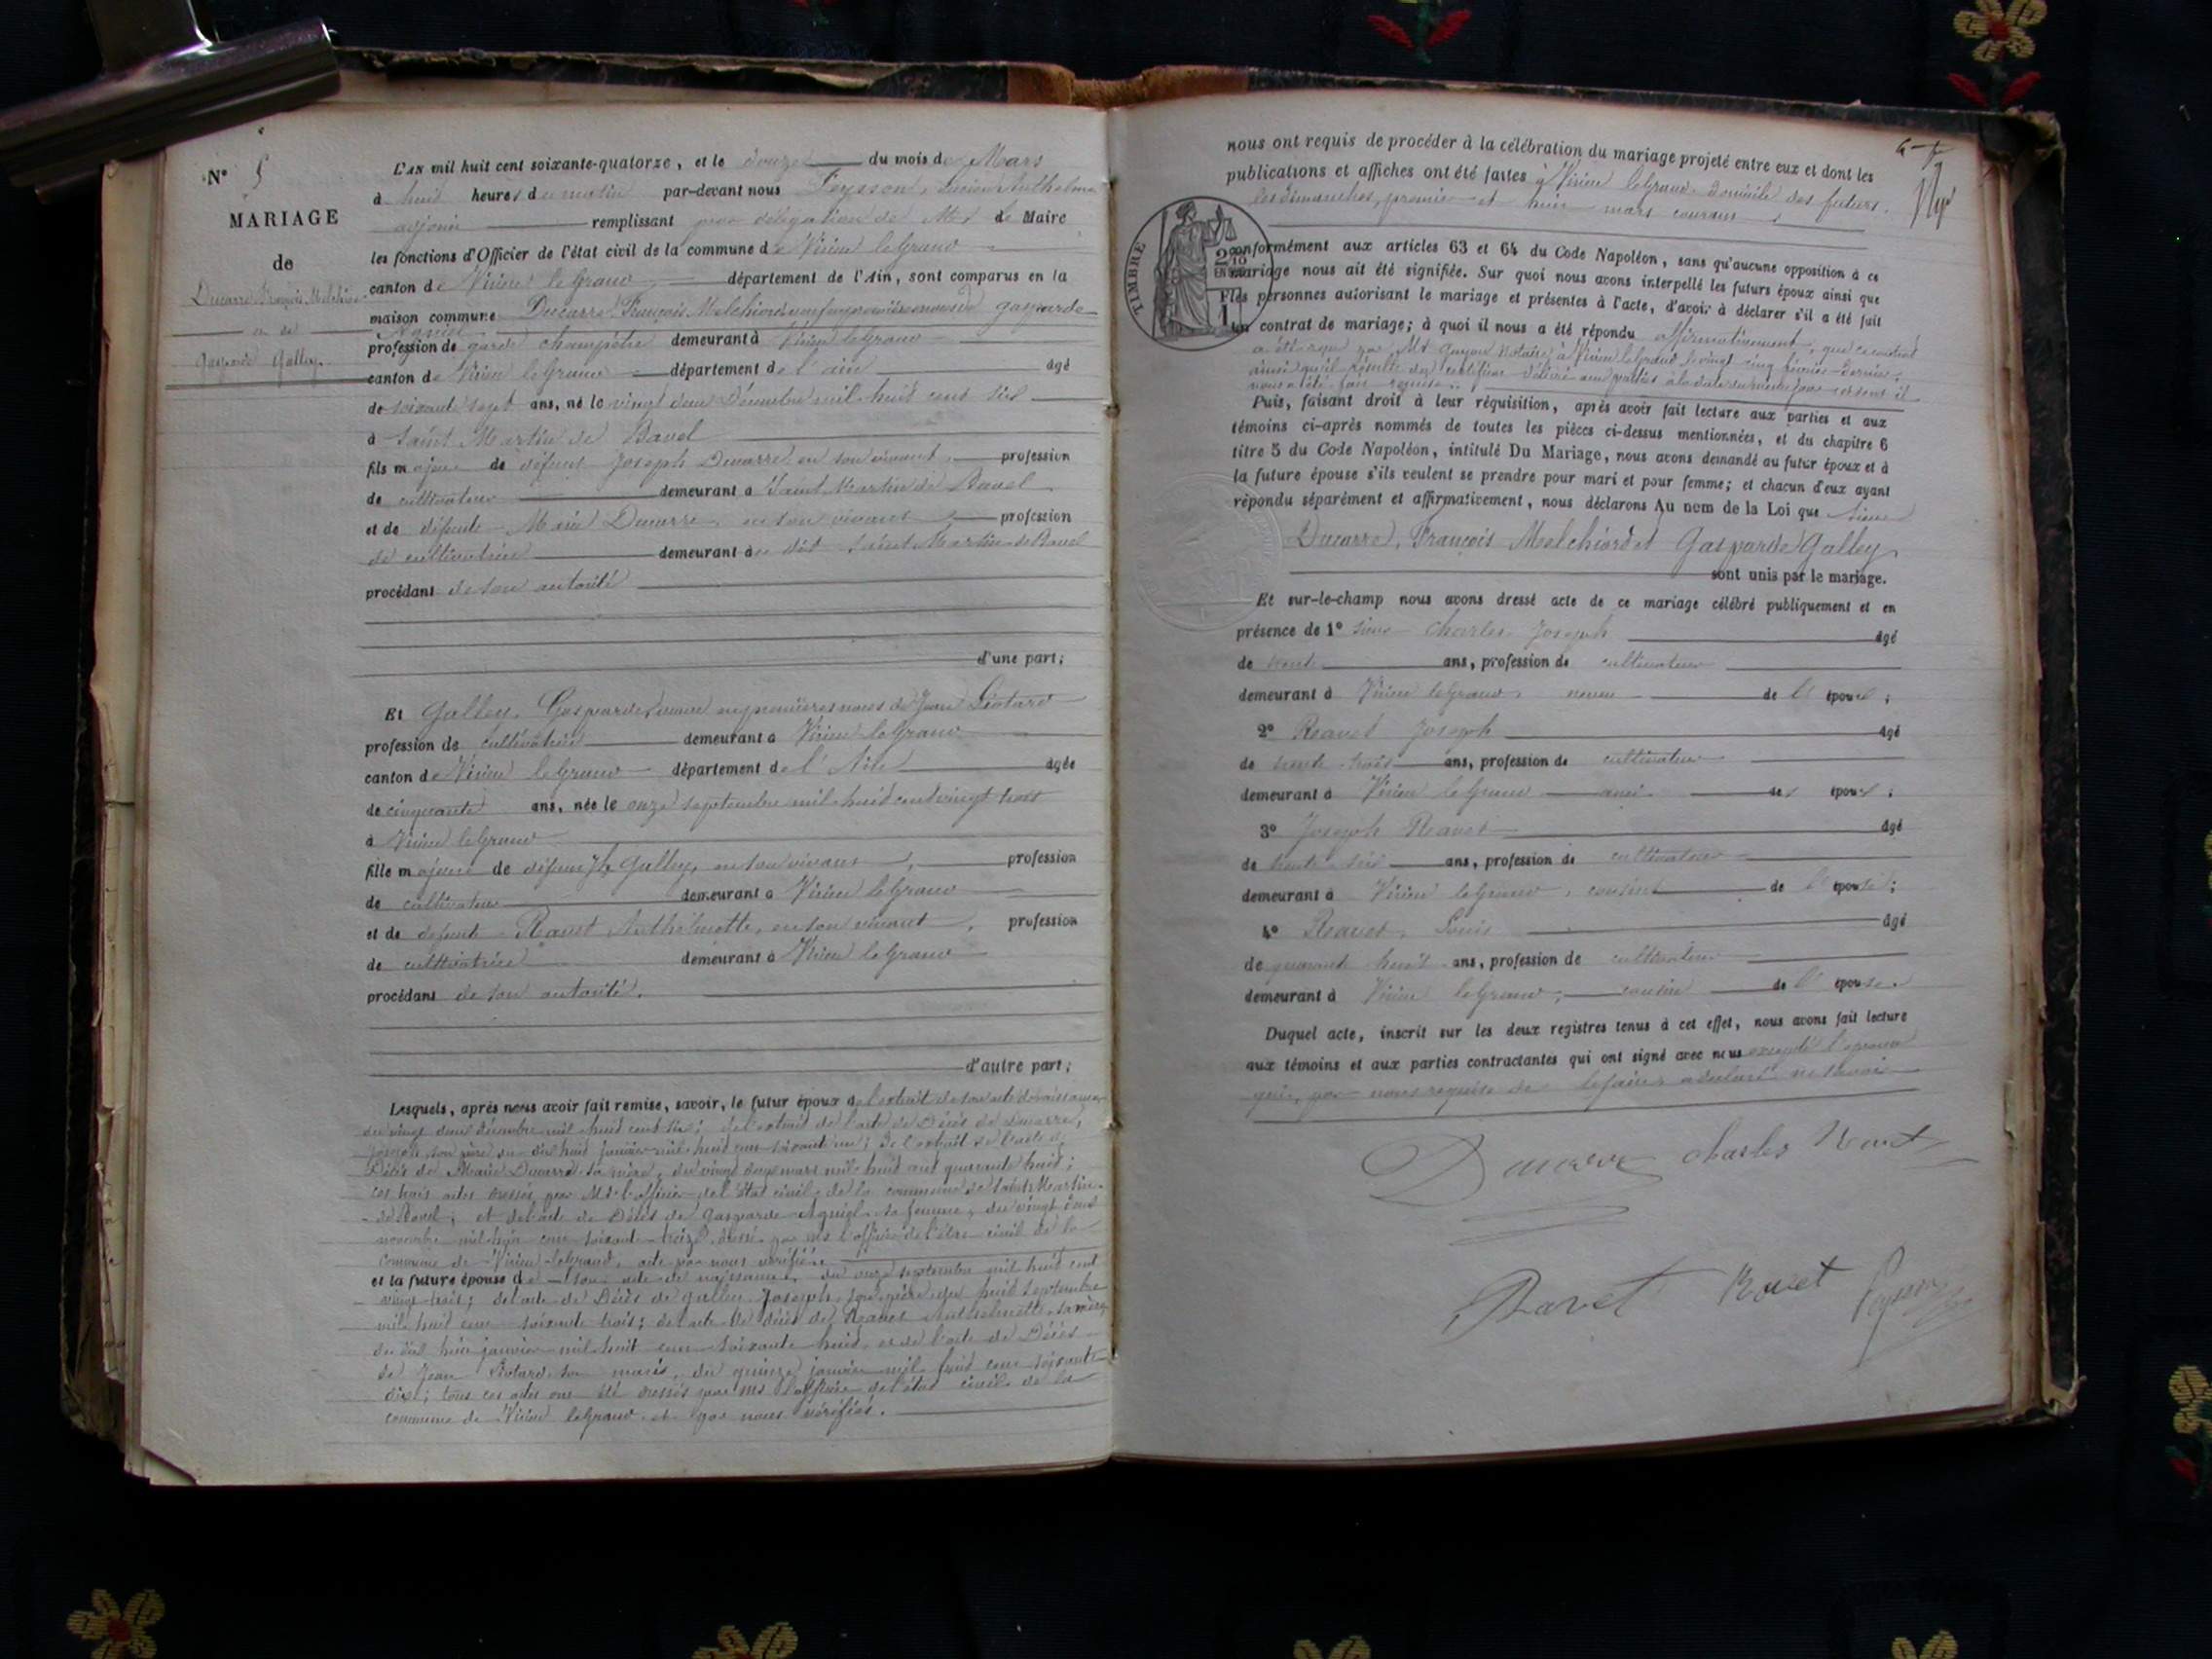 N° 5
MARIAGE
de
Ducarre François Melchior
et de
Gasparde Galley
L'AN mil huit cent soixante-quatorze, et le douze du mois de Mars
à huit heures du matin par-devant nous Peysson, Lucien Anthelme
adjoint remplissant par délégation de Mr le Maire
les fonctions d'Officier de l'état civil de la commune de Virieu le Grand
canton de Virieu le Grand département de l'Ain, sont comparus en la
maison commune Ducarre François Melchior veuf en premières noces de gasparde
profession de garde champêtre demeurant à Virieu le Grand
canton de Virieu le Grand département de l'ain âgé
de soixante sept ans, né le vingt deux Décembre mil huit cent six
à Saint Martin de Bavel
fils majeur de défunt Joseph Ducarre en son vivant, profession
de cultivateur demeurant à Saint Martin de Bavel
et de défunte Marie Ducarre, en son vivant, profession
de cultivatrice demeurant au dit Saint Martin de Bavel
procédant de son autorité
d'une part;
Et Galley, Gasparde, veuve en premières noces de Jean
profession de cultivatrice demeurant à Virieu le Grand
canton de Virieu le Grand département de l'Ain âgée
de cinquante ans, née le onze septembre mil huit cent vingt trois
à Virieu le Grand
fille majeure de défunt Jh Galley, en son vivant, profession
de cultivateur demeurant à Virieu le Grand
et de défunte Ravet Anthelmette, en son vivant, profession
de cultivatrice demeurant à Virieu le Grand
procédant de son autorité.
d'autre part;
Lesquels, après nous avoir fait remise, savoir, le futur époux de l'extrait de son acte de naissance
du vingt deux décembre mil huit cent six; de l'extrait de l'acte de Décès de Ducarre,
Joseph, son père du dix huit janvier mil huit cent soixante un; de l'extrait de l'acte de
Décès de Marie Ducarre sa mère, du vingt mars mil huit cent quarante huit;
ces trois actes dressés par Mr l'officier de l'état civil de la commune de Saint Martin
de Bavel; et de l'acte de Décès de Gasparde sa femme, du vingt deux
novembre mil huit cent soixante treize dressé par Mr l'officier de l'état civil de la
commune de Virieu le Grand, acte par nous vérifié.
et la future épouse de son acte de naissance, du onze septembre mil huit cent
vingt trois; de l'acte de Décès de galley Joseph, son père, du huit septembre
mil huit cent soixante trois; de l'acte de décès de Ravet Anthelmette, sa mère,
du dix huit janvier mil huit cent soixante huit, et de l'acte de Décès
de Jean son mari, du quinze janvier mil huit cent soixante
dix; tous ces actes ont été dressés par Mr l'officier de l'état civil de la
commune de Virieu le Grand et par nous vérifiés.
nous ont requis de procéder à la célébration du mariage projeté entre eux et dont les
publications et affiches ont été faites à Virieu le Grand domicile des futurs.
les dimanches, premier et huit mars courant
TIMBRE
conformément aux articles 63 et 64 du Code Napoléon, sans qu'aucune opposition à ce
mariage nous ait été signifiée. Sur quoi nous avons interpellé les futurs époux ainsi que
les personnes autorisant le mariage et présentes à l'acte, d'avoir à déclarer s'il a été fait
un contrat de mariage; à quoi il nous a été répondu affirmativement, que ce contrat
a été reçu par Mr Guyon Notaire à Virieu le Grand le vingt cinq février dernier,
ainsi qu'il résulte du certificat délivré aux parties à la date
nous a été fait remise.
Puis, faisant droit à leur réquisition, après avoir fait lecture aux parties et aux
témoins ci-après nommés de toutes les pièces ci-dessus mentionnées, et du chapitre 6
titre 5 du Code Napoléon, intitulé Du Mariage, nous avons demandé au futur époux et à
la future épouse s'ils veulent se prendre pour mari et pour femme; et chacun d'eux ayant
répondu séparément et affirmativement, nous déclarons Au nom de la Loi que sieur
Ducarre, François Melchior et Gasparde Galley
sont unis par le mariage.
Et sur-le-champ nous avons dressé acte de ce mariage célébré publiquement et en
présence de 1° sieur Charles Joseph âgé
de trente ans, profession de cultivateur
demeurant à Virieu le Grand neveu de l' épouse;
2° Ravet Joseph âgé
de trente trois ans, profession de cultivateur
demeurant à Virieu le Grand ami des époux;
3° Joseph Ravet âgé
de trente six ans, profession de cultivateur
demeurant à Virieu le Grand, cousin de l' épouse;
4° Ravet, Louis âgé
de quarante huit ans, profession de cultivateur
demeurant à Virieu le Grand, cousin de l' épouse.
Duquel acte, inscrit sur les deux registres tenus à cet effet, nous avons fait lecture
aux témoins et aux parties contractantes qui ont signé avec nous excepté l'épouse
qui, par nous requise de le faire, a déclaré ne savoir
Ducarre Charles Ravet
Ravet Ravet Peysson